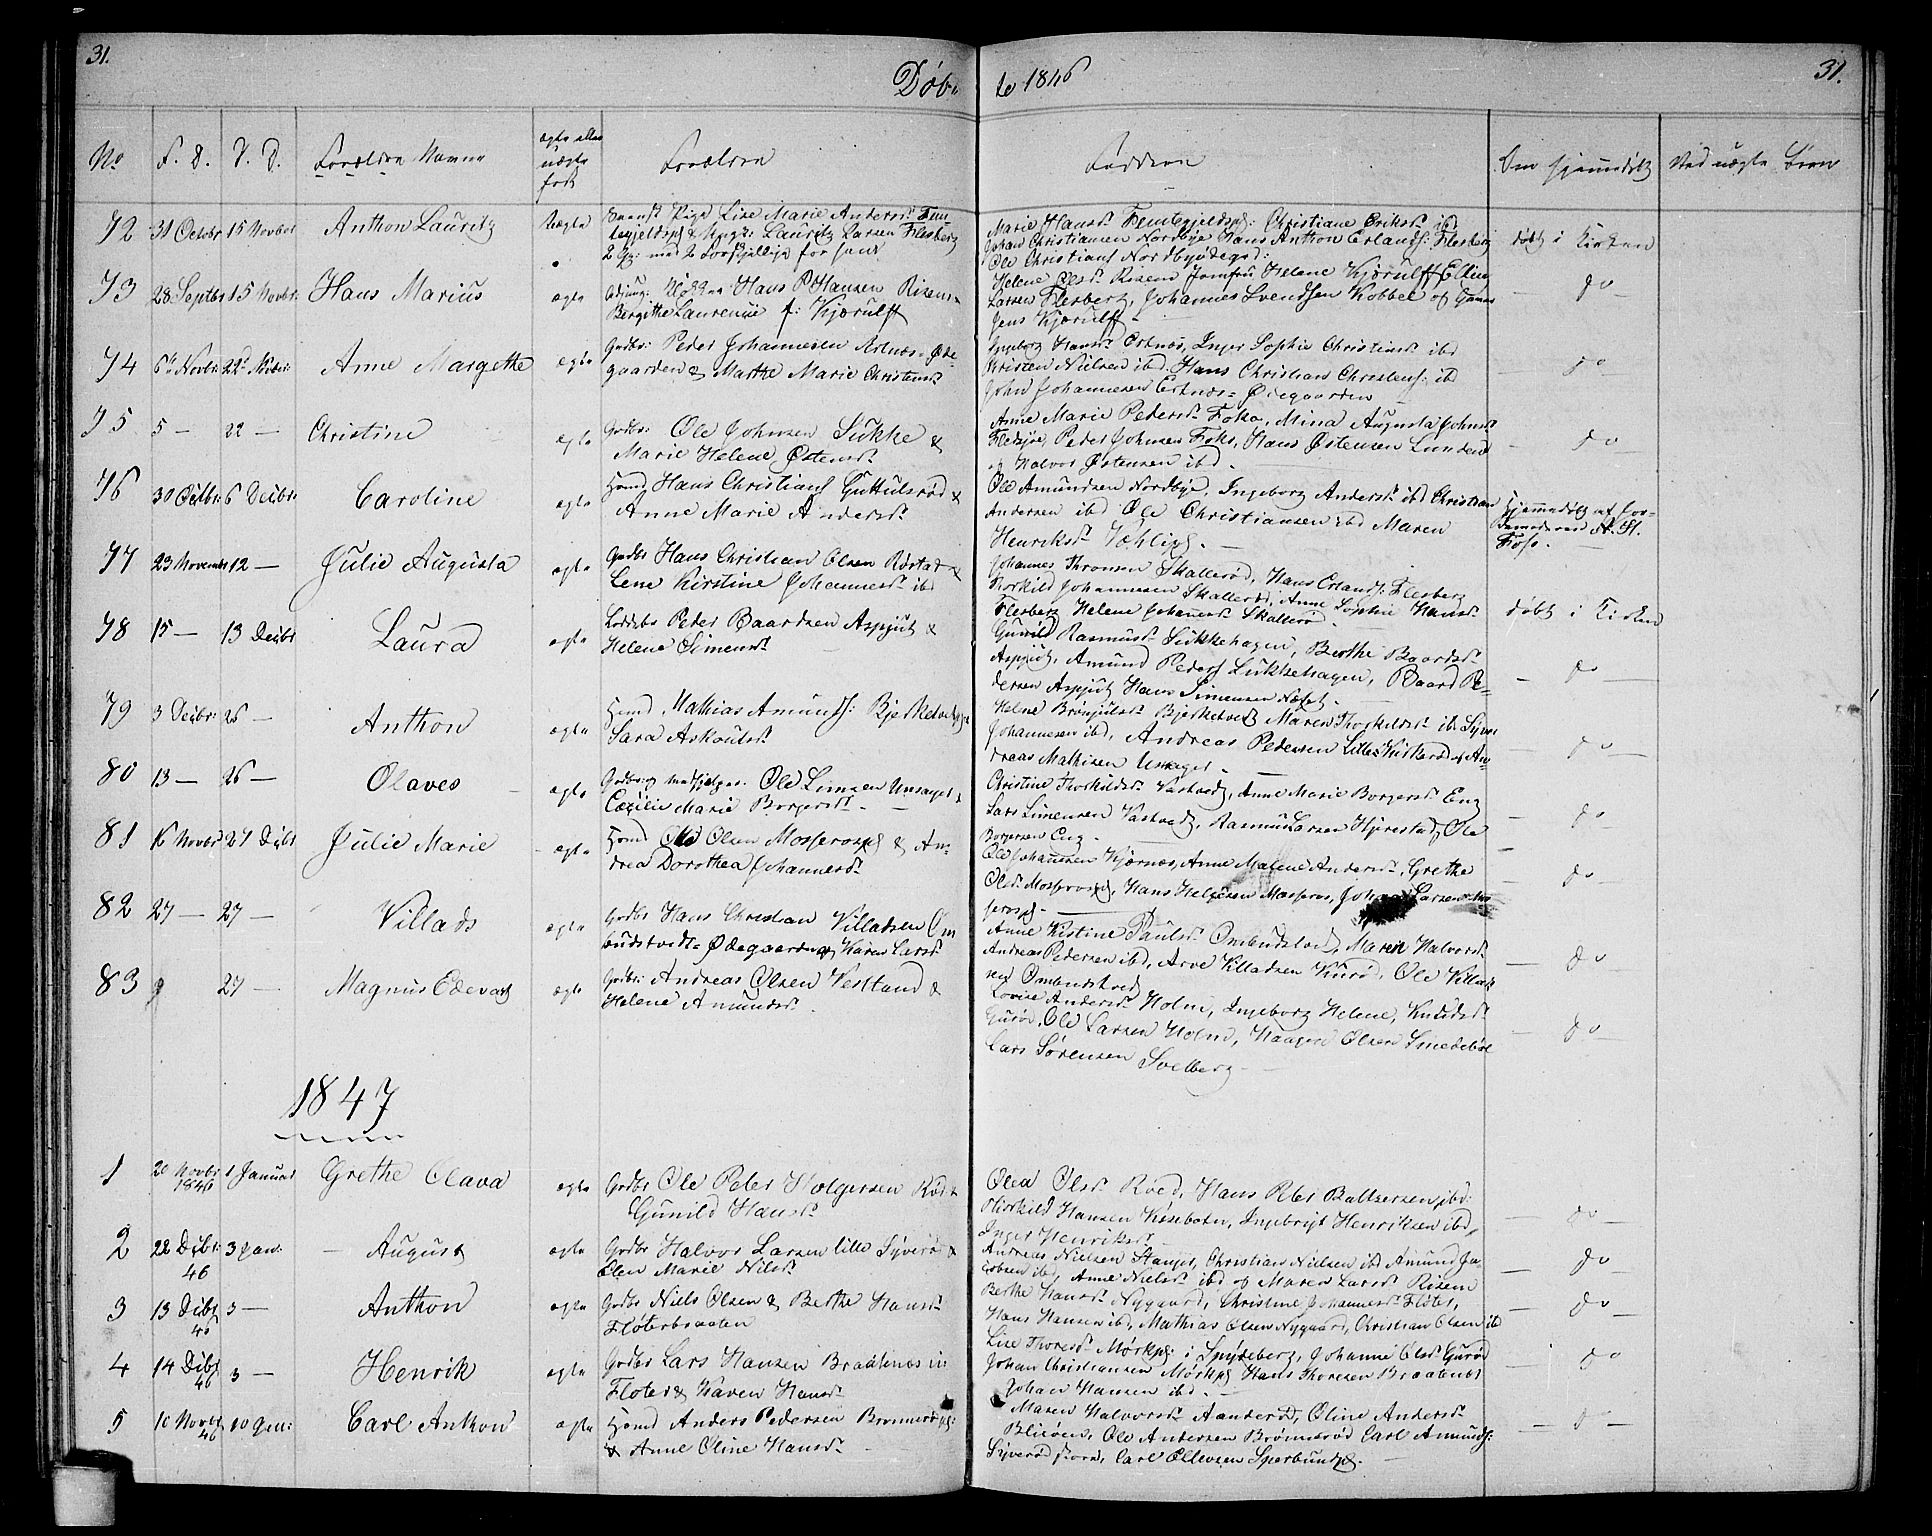 31.
Døbte 1846
31.
No
F. D.
D. D.
Forældre Navne
ægte eller uægte født
Forældre
Faddere
Om hjemmedøbt
Ved uægte Børn
72 31 Octobr 15 Novbr Anthon Lauritz Uægte
Pige Lise Marie Andersd.
Lauritz Larsen Flesberg
2 Gg: med 2 forskjellige
Marie Hansd. Christiane Eriksd. ibd
Johan Christiansen Nordbye Hans Anthon Erlands: Flesberg
Ole Christians Nordbyødegrd:
døbt i Kirken
73 28 Septbr 15 Novbr: Hans Marius ægte
Hans P Hansen Risem &
Bergithe Laurenne f: Kjerulff
Helene Olsd. Risem Jomfru Helene Kjerulff Elling
Larsen Flesberg, Johannes Svendsen Kobbel og
Jens Kjerulff
do
74 6te Novbr: 22de Anne Margethe ægte
Gudbr: Peder Johannesen Ertnæs Øde-
gaarden & Marthe Marie Christensd.
Ingeborg Hansd. Ertnæs, Inger Sophie Christensd. ibd
Christen Nielsen ibd. Hans Christian Christens: ibd
John Johannesen Ertnæs Ødegaarden
do
75 5 — 22 — Christine ægte
Gudbr: Ole Johnsen Sukke &
Marie Helene Østensd.
Anne Marie Pedersd. Foks, Mina Augusta Johnsd.
Fledsjøe, Peder Johnsen Foks, Hans Østensen Lunden
og Halvor Østensen ibd.
do
76 30 Octbr: 6 Decbr: Caroline ægte
Huusmd Hans Christians Guttulsrød &
Anne Marie Andersd.
Ole Amundsen Nordbye, Ingeborg Andersd. ibd Christian
Andersen ibd Ole Christiansen ibd Maren
Henriksd.
hjemmedøbt af Jor-
demoderen A. St.
Foss.
77 23 Novembr 12 — Julie Augusta ægte
Gudbr Hans Christian Olsen &
Lene Kirstine Johannesd. ibd
Johannes Thronsen Skallerød, Hans Erlands: Flesberg
Thorkild Johannesen Skallerød, Anne Sophie Hansd.
Flesberg Helene Johannesd. Skallerød.
døbt i Kirken
78 15 — 13 Decbr Laura ægte
Peder Baardsen Aspjut &
Helene Simensd.
Gunild Rasmusd. Sukkehagen, Berthe Baardsd.
Aspjut, Amund Peders Sukkehagen, Baard Pe-
dersen Aspjut Hans Simensen Næset.
do
79 3 Decbr: 26 — Anthon ægte
Huusmd Mathias Amunds: Bjerketvedt
Sara Askoutsd.
Helene Brønjulsd. Bjerketvedt Maren Thorkildsd. ibd
Johannesen ibd, Andreas Pedersen og An-
dreas Mathisen Unsaget
do
80 13 — 26 — Olaves ægte
Gudbr: og Medhjelper: Ole Simsen Unsaget &
Cæcilie Marie Borgersd.
Christine Thorkildsd. Vastvedt, Anne Marie Borgersd. Eng
Lars Simensen Vastvedt, Rasmus Larsen Hjerestad, Ole
Borgersen Eng
do
81 Novbr 27 Dcbr Julie Marie ægte
Huusmd Ole Olsen Mosserospl & An-
drea Dorothea Johannesd.
Ole Johannsen Kjærnæs, Anne Malene Andersd., Grethe
Olsd. Mosserospl, Hans Helgesen Mosseros, Johan Larsen Mos
serospl.
do
82 27 — 27 — Villads ægte
Gudbr Hans Christian Villadsen Om
budstvedt-Ødegaarden & Karen Larsd.
Anne Kistine Paulsd. Ombudstvedt, Maren Halvorsd.
Andreas Pedersen ibd, Arve Villadsen Kurø, Ole Villad-
sen Ombudstvedt
do
83 27 — Magnus Edevart ægte
Gudbr: Andreas Olsen Vestland &
Helene Amundsd.
Lovise Andersd. Holm, Ingeborg Helene, Knudsd.
Gurøe, Ole Larsen Holm, Haagen Olsen Smedsbøl
Lars Sørensen Svelberg
do
1847
1 20 Novbr 1846 1 Januar Grethe Olava ægte
Gudbr Ole Peter Holgersen Rød &
Gunild Hansd.
Olea Olsd. Røed, Hans Peter Baltsersen ibd:
Thorkild Hansen Kisebotn, Ingebrigt Henriksen ibd,
Inger Henriksd.
do
2 22 Dcbr: 46 3 Jan: August ægte
Gudbr Halvor Larsen lille Syverø &
Elen Marie Nilsd.
Andreas Nielsen Stange, Christian Nielsen ibd Amund Ja-
cobsen ibd, Anne Nielsd. ibd og Maren Larsd. Risem
do
3 13 Dcbr 46 3 — Anthon ægte
Gudbr Niels Olsen & Berthe Hansd.
Fløterbraaten
Berthe Hansd. Nygaard, Christine Johannesd. Fløter,
Hans Hansen ibd, Mathias Olsen Nygaard, Christian Olsen ibd
do
4 14 Dcbr 46 3 — Henrik ægte
Gudbr Lars Hansen Braatenæs in
Floter & Karen Hansd.
Lise Thoresd. Mørkpl: i Spydeberg, Johanne Olsd. Gurød
Johan Christiansen Mørkpl Hans Thoresen Braatenæs
Johan Hansen ibd.
do
5 10 Novbr 46 10 Jan: Carl Anthon ægte
Huusmd Anders Pedersen Brømnerødpl:
& Anne Oline Hansd.
Maren Halvorsd. Aanderød, Oline Andersd.
Blieøen, Ole Andersen Brømnerød Carl Amunds:
Syverød store, Carl Ellevsen Sperbundpl.
do